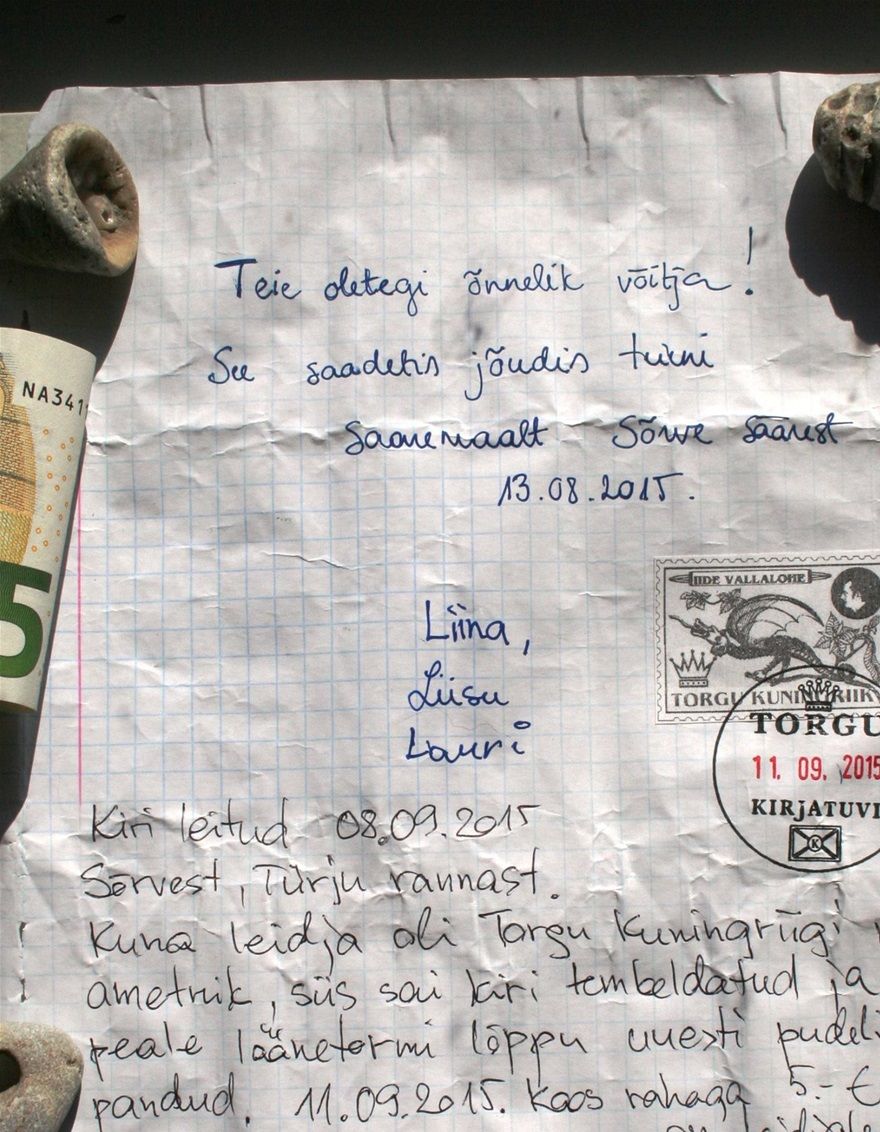 Teie oletegi õnnelik võitja!
See saadetis jõudis teieni
Saaremaalt Sõrve säärest
13.08.2015.
NA341
5
Liina,
Liisu
Lauri
IIDE VALLALOHE
TORGU KUNINGRIIK
TORGU
11.09.2015
KIRJATUVI
K
Kiri leitud 08.09.2015
Sõrvest, Türju rannast.
Kuna leidja oli Torgu Kuningriigi
ametnik, siis sai kiri tembeldatud ja
peale läänetormi lõppu uuesti pudeli
pandud. 11.09.2015. Koos rahaga 5.- €
on leidjale